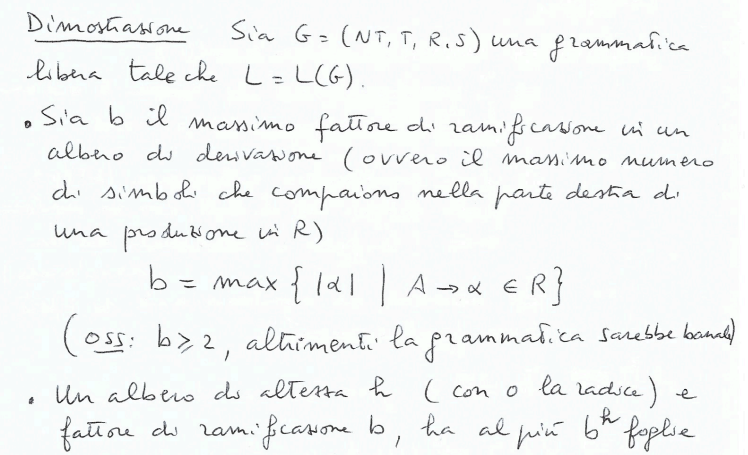 Dimostrazione Sia G = (NT, T, R, S) una grammatica
libera tale che L = L(G).
• Sia b il massimo fattore di ramificazione in un
albero di derivazione (ovvero il massimo numero
di simboli che compaiono nella parte destra di
una produzione in R)
b = max { |α| | A → α ∈ R}
(oss: b ⩾ 2, altrimenti la grammatica sarebbe banale)
• Un albero di altezza h (con 0 la radice) e
fattore di ramificazione b, ha al più b^h foglie